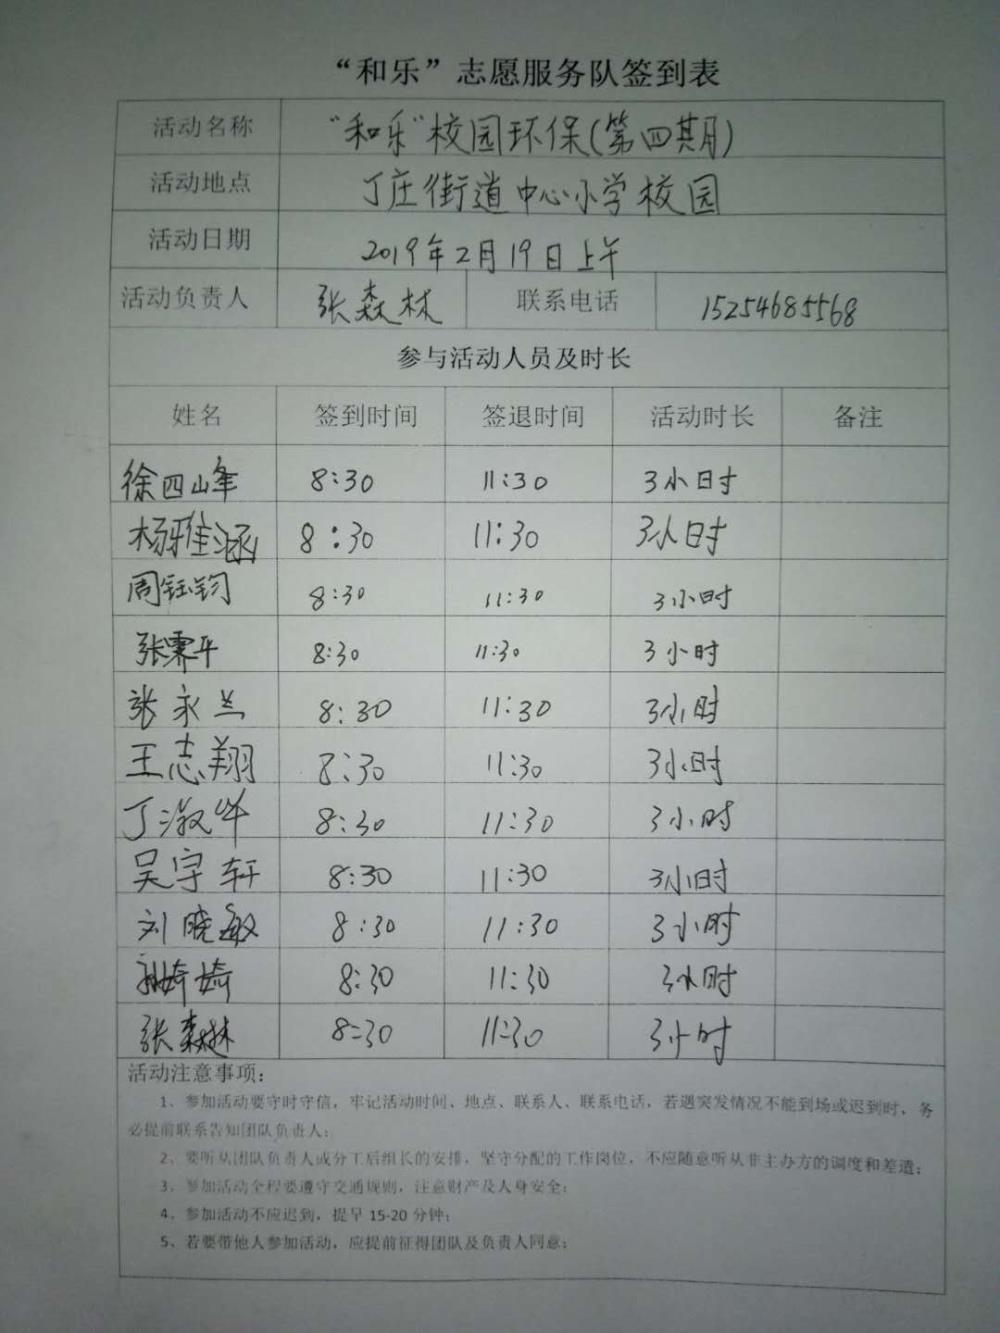 “和乐”志愿服务队签到表
活动名称 “和乐”校园环保(第四期)
活动地点 丁庄街道中心小学校园
活动日期 2019年2月19日上午
活动负责人 张森林 联系电话 15254685568
参与活动人员及时长
姓名 签到时间 签退时间 活动时长 备注
徐四峰 8:30 11:30 3小时
杨雅涵 8:30 11:30 3小时
周钰钧 8:30 11:30 3小时
张霁平 8:30 11:30 3小时
张永兰 8:30 11:30 3小时
王志翔 8:30 11:30 3小时
丁淑华 8:30 11:30 3小时
吴宇轩 8:30 11:30 3小时
刘晓敏 8:30 11:30 3小时
8:30 11:30 3小时
张森林 8:30 11:30 3小时
活动注意事项：
1、参加活动要守时守信，牢记活动时间、地点、联系人、联系电话，若遇突发情况不能到场或迟到时，务
必提前联系告知团队负责人；
2、要听从团队负责人或分工后组长的安排，坚守分配的工作岗位，不应随意听从非主办方的调度和差遣；
3、参加活动全程要遵守交通规则，注意财产及人身安全；
4、参加活动不应迟到，提早 15-20 分钟；
5、若要带他人参加活动，应提前征得团队及负责人同意；